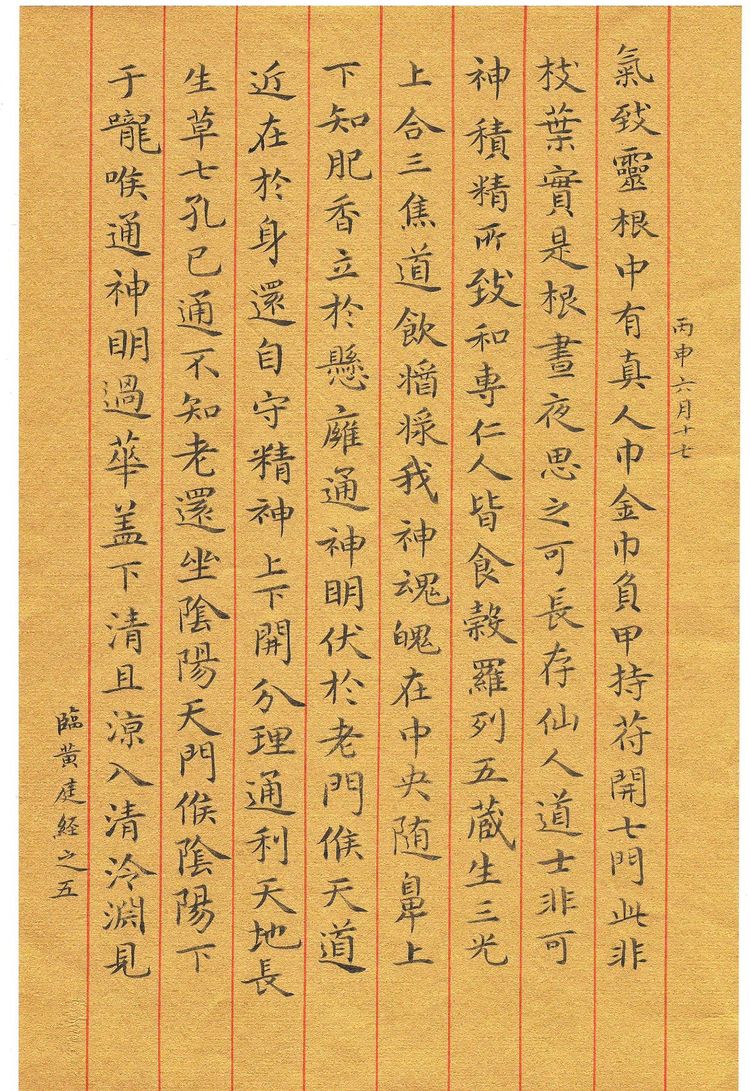 丙申六月十七
氣致靈根中有真人巾金巾負甲持苻開七門此非
枝葉實是根晝夜思之可長存仙人道士非可
神積精所致和專仁人皆食穀羅列五蔵生三光
上合三焦道飲醬㵂我神魂魄在中央随鼻上
下知肥香立於懸廱通神明伏於老門候天道
近在於身還自守精神上下開分理通利天地長
生草七孔已通不知老還坐陰陽天門候陰陽下
于嚨喉通神明過華盖下清且涼入清泠淵見
臨黃庭経之五